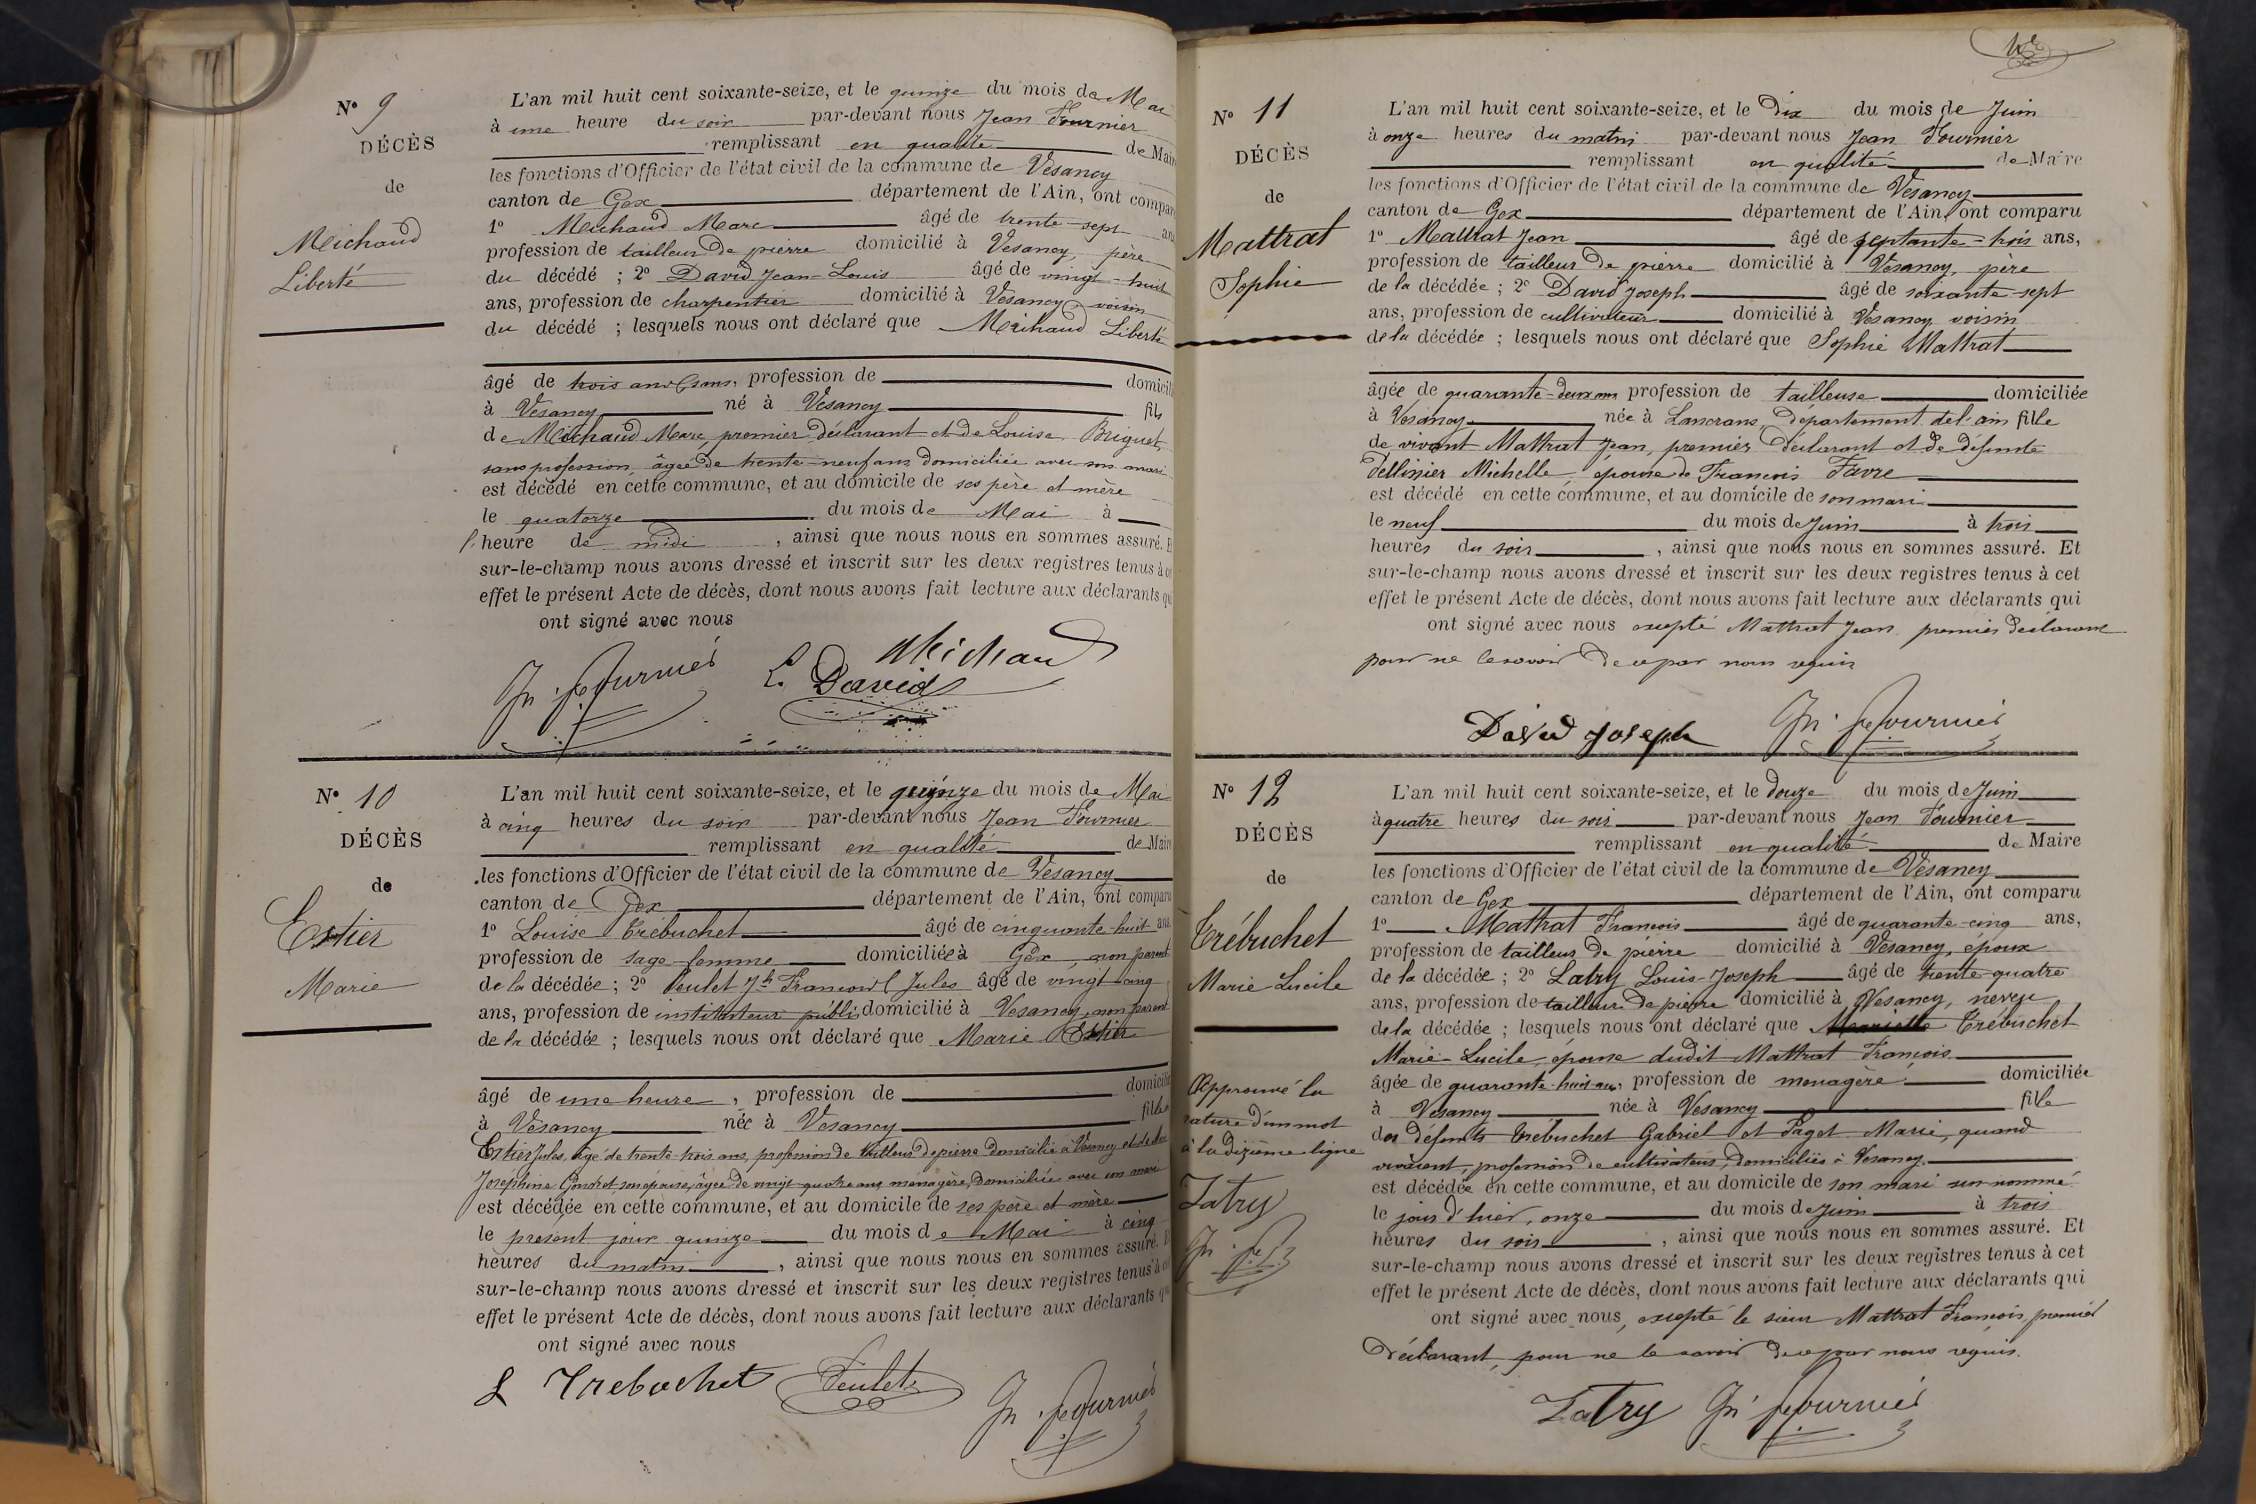 Nº 9
DÉCÈS
de
Meichaud
Liberté
L'an mil huit cent soixante-seize, et le quinze du mois de Mai
à une heure du soir par-devant nous Jean Fournier
remplissant en qualité de Mair
les fonctions d'Officier de l'état civil de la commune de Vesancy
canton de Gex département de l'Ain, ont compar
1º Meichaud Marc âgé de trente-sept an
profession de tailleur de pierre domicilié à Vesancy, père
du décédé ; 2º David Jean-Louis âgé de vingt-huit
ans, profession de charpentier domicilié à Vesancy voisin
du décédé ; lesquels nous ont déclaré que Meichaud Liberté
âgé de trois ans, profession de domicil
à Vesancy né à Vesancy fils
de Meichaud Marc, premier déclarant et de Louise Briguet,
sans profession, âgée de trente-neuf ans domiciliée avec son mari
est décédé en cette commune, et au domicile de ses père et mère
le quatorze du mois de Mai à
l'heure de midi, ainsi que nous nous en sommes assuré. E
sur-le-champ nous avons dressé et inscrit sur les deux registres tenus à c
effet le présent Acte de décès, dont nous avons fait lecture aux déclarants qu
ont signé avec nous
Jn. fs. Fournier L. David Meichaud
Nº 10
DÉCÈS
de
Estier
Marie
L'an mil huit cent soixante-seize, et le quinze du mois de Mai
à cinq heures du soir par-devant nous Jean Fournier
remplissant en qualité de Mair
les fonctions d'Officier de l'état civil de la commune de Vesancy
canton de Gex département de l'Ain, ont comparu
1º Louise Trébuchet âgé de cinquante-huit ans
profession de sage-femme domiciliée à Gex non parent
de la décédée ; 2º Peulet Jh François Jules âgé de vingt-cinq
ans, profession de instituteur public domicilié à Vesancy, non parent
de la décédée ; lesquels nous ont déclaré que Marie Estier
âgé de une heure, profession de domicilié
à Vesancy née à Vesancy fille
Estier Jules, âgé de trente-trois ans, profession de tailleur de pierre domicilié à Vesancy et de
Joséphine son épouse, âgée de vingt-quatre ans, ménagère, domiciliée avec son mari
est décédée en cette commune, et au domicile de ses père et mère
le présent jour quinze du mois de Mai à cinq
heures du matin, ainsi que nous nous en sommes assuré. E
sur-le-champ nous avons dressé et inscrit sur les deux registres tenus à c
effet le présent Acte de décès, dont nous avons fait lecture aux déclarants qu
ont signé avec nous
L Trebuchet Peulet Jn. fs. Fournier
Nº 11
DÉCÈS
de
Mattrat
Sophie
L'an mil huit cent soixante-seize, et le dix du mois de Juin
à onze heures du matin par-devant nous Jean Fournier
remplissant en qualité de Maire
les fonctions d'Officier de l'état civil de la commune de Vesancy
canton de Gex département de l'Ain, ont comparu
1º Mattrat Jean âgé de septante-trois ans,
profession de tailleur de pierre domicilié à Vesancy, père
de la décédée ; 2º David Joseph âgé de soixante-sept
ans, profession de cultivateur domicilié à Vesancy voisin
de la décédée ; lesquels nous ont déclaré que Sophie Mattrat
âgée de quarante-deux ans profession de tailleuse domiciliée
à Vesancy née à Lancrans département de l'ain fille
de vivant Mattrat Jean, premier déclarant et de défunte
Pellissier Michelle, épouse de François Favre
est décédé en cette commune, et au domicile de son mari
le neuf du mois de Juin à trois
heures du soir, ainsi que nous nous en sommes assuré. Et
sur-le-champ nous avons dressé et inscrit sur les deux registres tenus à cet
effet le présent Acte de décès, dont nous avons fait lecture aux déclarants qui
ont signé avec nous excepté Mattrat Jean premier déclarant
pour ne le savoir de ce par nous requis
David Joseph Jn. fs. Fournier
Nº 12
DÉCÈS
de
Trébuchet
Marie Lucile
Approuvé la
rature d'un mot
à la dixième ligne
Latry
Jn. fs. F
L'an mil huit cent soixante-seize, et le douze du mois de Juin
à quatre heures du soir par-devant nous Jean Fournier
remplissant en qualité de Maire
les fonctions d'Officier de l'état civil de la commune de Vesancy
canton de Gex département de l'Ain, ont comparu
1º Mattrat François âgé de quarante-cinq ans,
profession de tailleur de pierre domicilié à Vesancy, époux
de la décédée ; 2º Latry Louis-Joseph âgé de trente-quatre
ans, profession de tailleur de pierre domicilié à Vesancy, neveu
de la décédée ; lesquels nous ont déclaré que Trébuchet
Marie-Lucile, épouse dudit Mattrat François
âgée de quarante-huit ans, profession de menagère domiciliée
à Vesancy née à Vesancy fille
des défunts Trébuchet Gabriel et Paget Marie, quand
vivaient, profession de cultivateurs, domiciliés à Vesancy.
est décédée en cette commune, et au domicile de son mari sus nommé
le jour d'hier, onze du mois de Juin à trois
heures du soir, ainsi que nous nous en sommes assuré. Et
sur-le-champ nous avons dressé et inscrit sur les deux registres tenus à cet
effet le présent Acte de décès, dont nous avons fait lecture aux déclarants qui
ont signé avec nous, excepté le sieur Mattrat François, premier
déclarant, pour ne le savoir de ce par nous requis.
Latry Jn. fs. Fournier